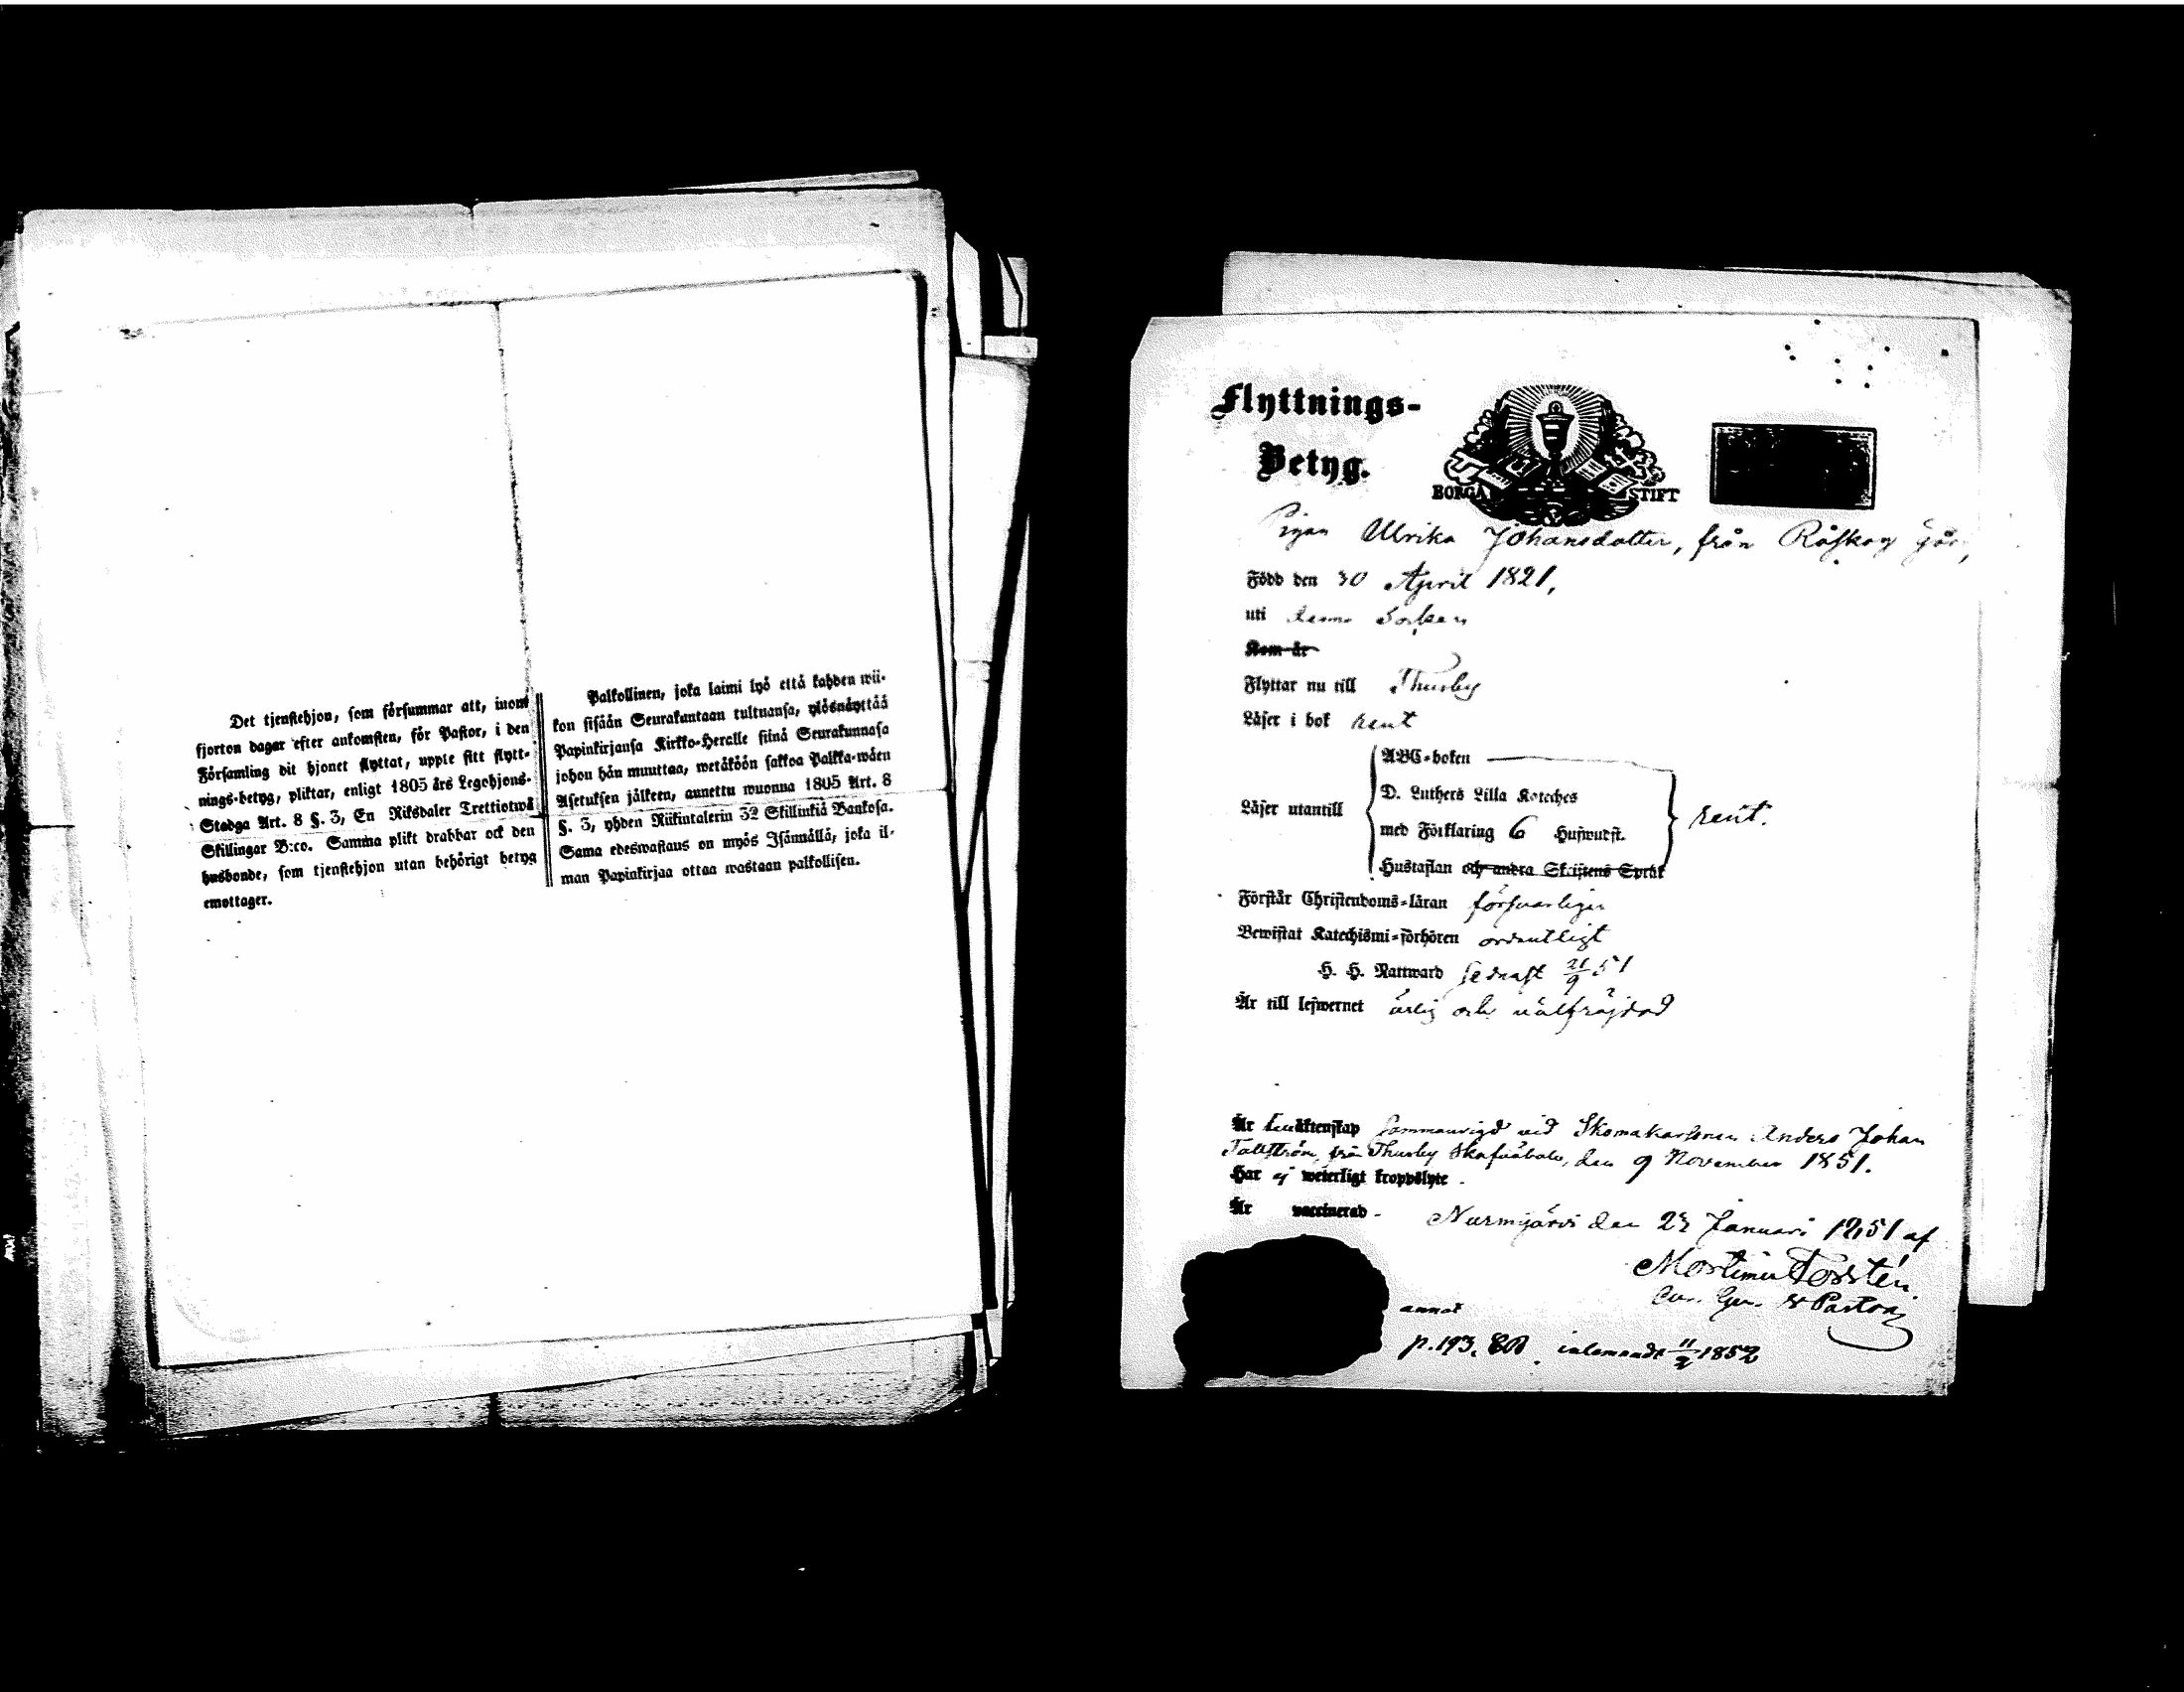 Det tjenstehjon, som försummar att, inom
fjorton dagar efter ankomsten, för Pastor, i den
Församling dit hjonet flyttat, uppte sitt flytt-
nings-betyg, pliktar, enligt 1805 års Legohjons-
Stadga Art. 8 §. 3, En Riksdaler Trettiotwå
Skillingar B:co. Samma plikt drabbar ock den
husbonde, som tjenstehjon utan behörigt betyg
emottager.
Palkollinen, joka laimi lyö että kahden wii-
kon sisään Seurakuntaan tultuansa, ylösnäyttää
Papinkirjansa Kirkko-Heralle siinä Seurakunnasa
johon hän muuttaa, wetäköön sakkoa Palkka-wäen
Asetuksen jälkeen, annettu wuonna 1805 Art. 8
§. 3, yhden Riikintalerin 32 Skillinkiä Bankosa.
Sama edeswastaus on myös Isännällä, joka il-
man Papinkirjaa ottaa wastaan palkollisen.
Flyttnings-
Betyg.
BORGÅ STIFT
Pigan Ulrika Johansdotter, från Råskog
Född den 30 April 1821,
uti Socken
Kom år
Flyttar nu till Thusby
Läser i bok rent
ABC-boken
D. Luthers Lilla Kateches
Läser utantill
med Förklaring 6 Huswudst.
rent.
Hustaflan och andra Skriftens Språk
Förstår Christendoms-läran försvarligen
Bewistat Katechismi-förhören ordentligt
H. H. Nattward sednast 21/9 51
Är till lefwernet ärlig och välfräjdad
Är äktenskap sammanvigd vid Skomakarsonen Anders Johan
Tallström, från Thusby Skafvaböle, den 9 November 1851.
Har ej weterligt kroppslyte.
Är vaccinerad. Nurmijärvi den 23 Januari 1851 af
Mortimer Forstén.
v Pastor
annat
p. 193. inlemnadt 11/2 1852